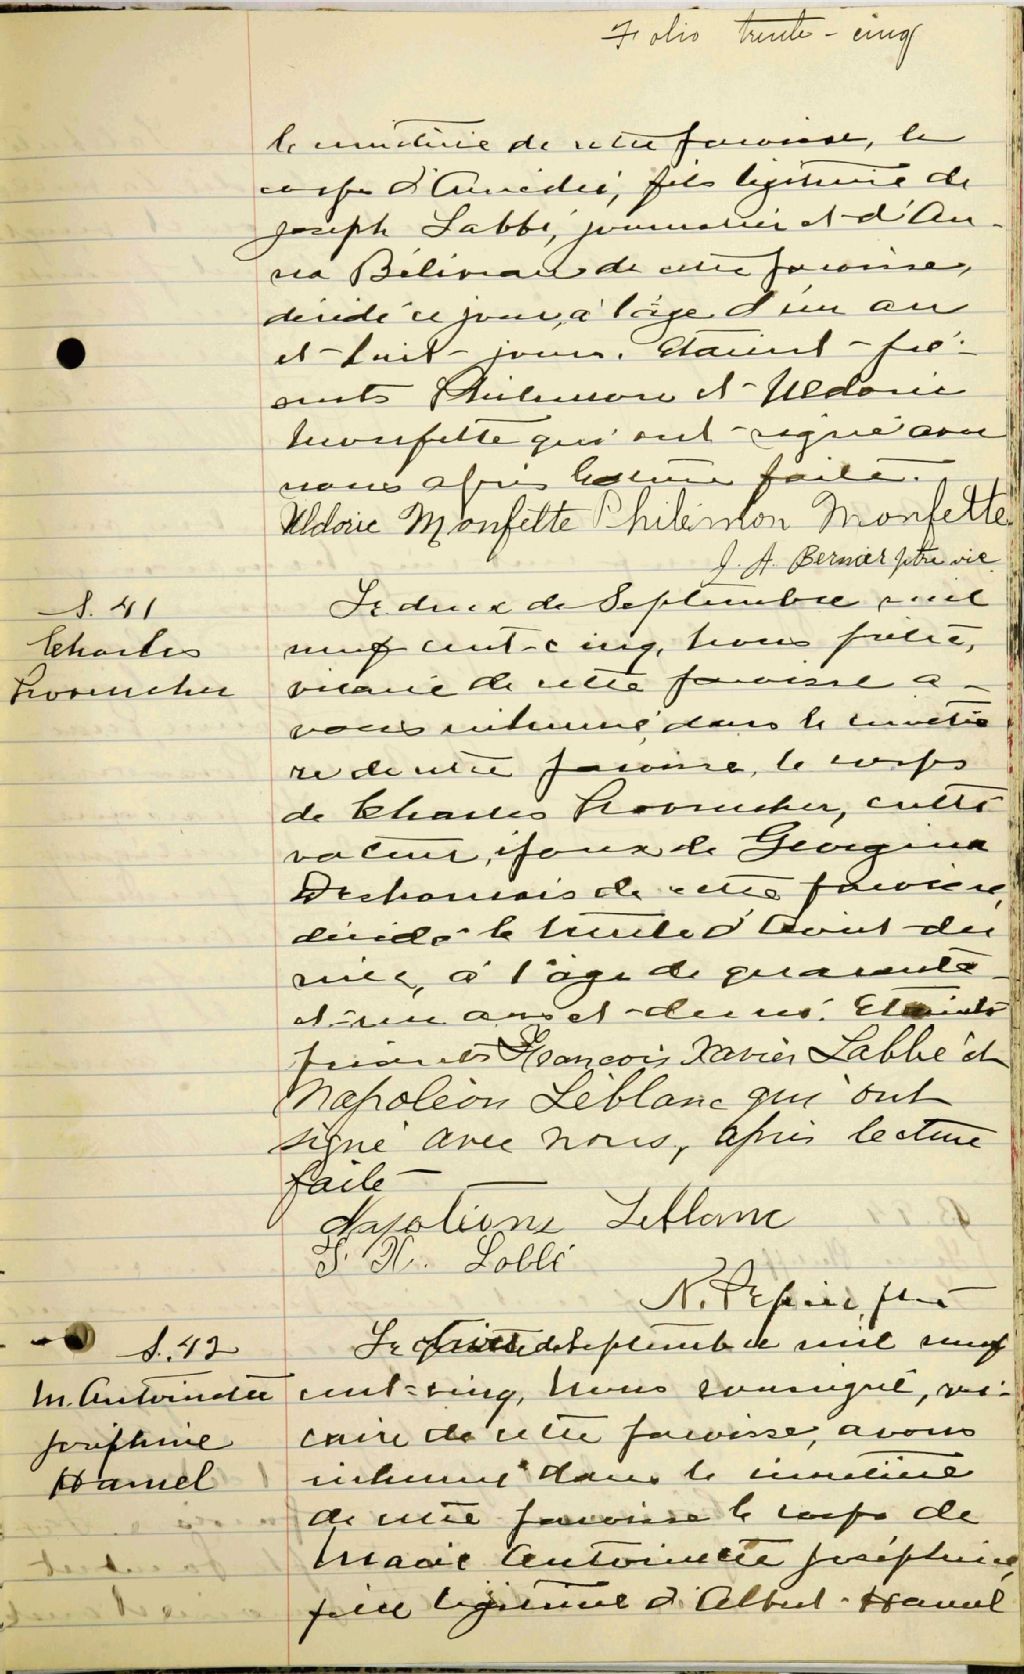 Folio trente-cinq
le cimetière de cette paroisse, le
corps d'Amédée, fils légitime de
Joseph Labbé, journalier et d'An-
na Béliveau de cette paroisse,
décédé ce jour, à l'âge d'un an
et huit jours. Etaient pré-
sents Philémon et Uldoric
Monfette qui ont signé avec
nous après lecture faite.
Uldoric Monfette Philémon Monfette
J. A. Bernier ptre vic
S. 41
Charles
Provencher
Le deux de Septembre mil
neuf cent-cinq, Nous prêtre,
vicaire de cette paroisse a-
vons inhumé, dans le cimetiè
re de cette paroisse, le corps
de Charles Provencher, culti
vateur, époux de Georgina
Desharnais de cette paroisse,
décédé le trente d'Août der
nier, à l'âge de quarante
et-un ans et demi. Etaients
présents François Xavier Labbé et
Napoléon Léblanc qui ont
signé avec nous, après lecture
faite
Napoleon Leblanc
F. X. Labbé
N. Pepin, ptre
S. 42
M. Antoinette
Joséphine
Hamel
Le de Septembre mil neuf
cent-cinq, Nous soussigné, vi-
caire de cette paroisse, avons
inhumé dans le cimetière
de cette paroisse le corps de
Marie Antoinette Joséphine,
fille légitime d'Albert Hamel